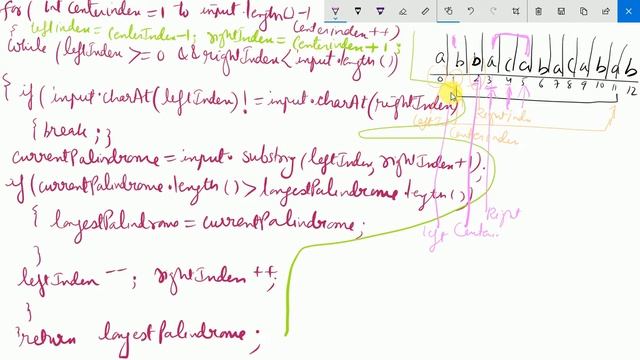 for( int centerindex = 1 to input.length()-1
centerindex++)
{ leftindex = centerIndex-1; rightIndex = centerindex+1;
while (leftIndex >= 0 && rightIndex < input.length())
{ if (input.charAt(leftIndex) != input.charAt(rightIndex)
{ break; }
currentPalindrome = input.substrg(leftIndex, rightIndex+1);
if(currentPalindrome.length() > longestPalindrome.length())
{ longestPalindrome = currentPalindrome;
}
leftIndex --; rightIndex ++;
}
}return longestPalindrome;
a b b a c a b a c a b a b
0 1 2 3 4 5 6 7 8 9 10 11 12
RightIndex
CenterIndex
Right
left Center